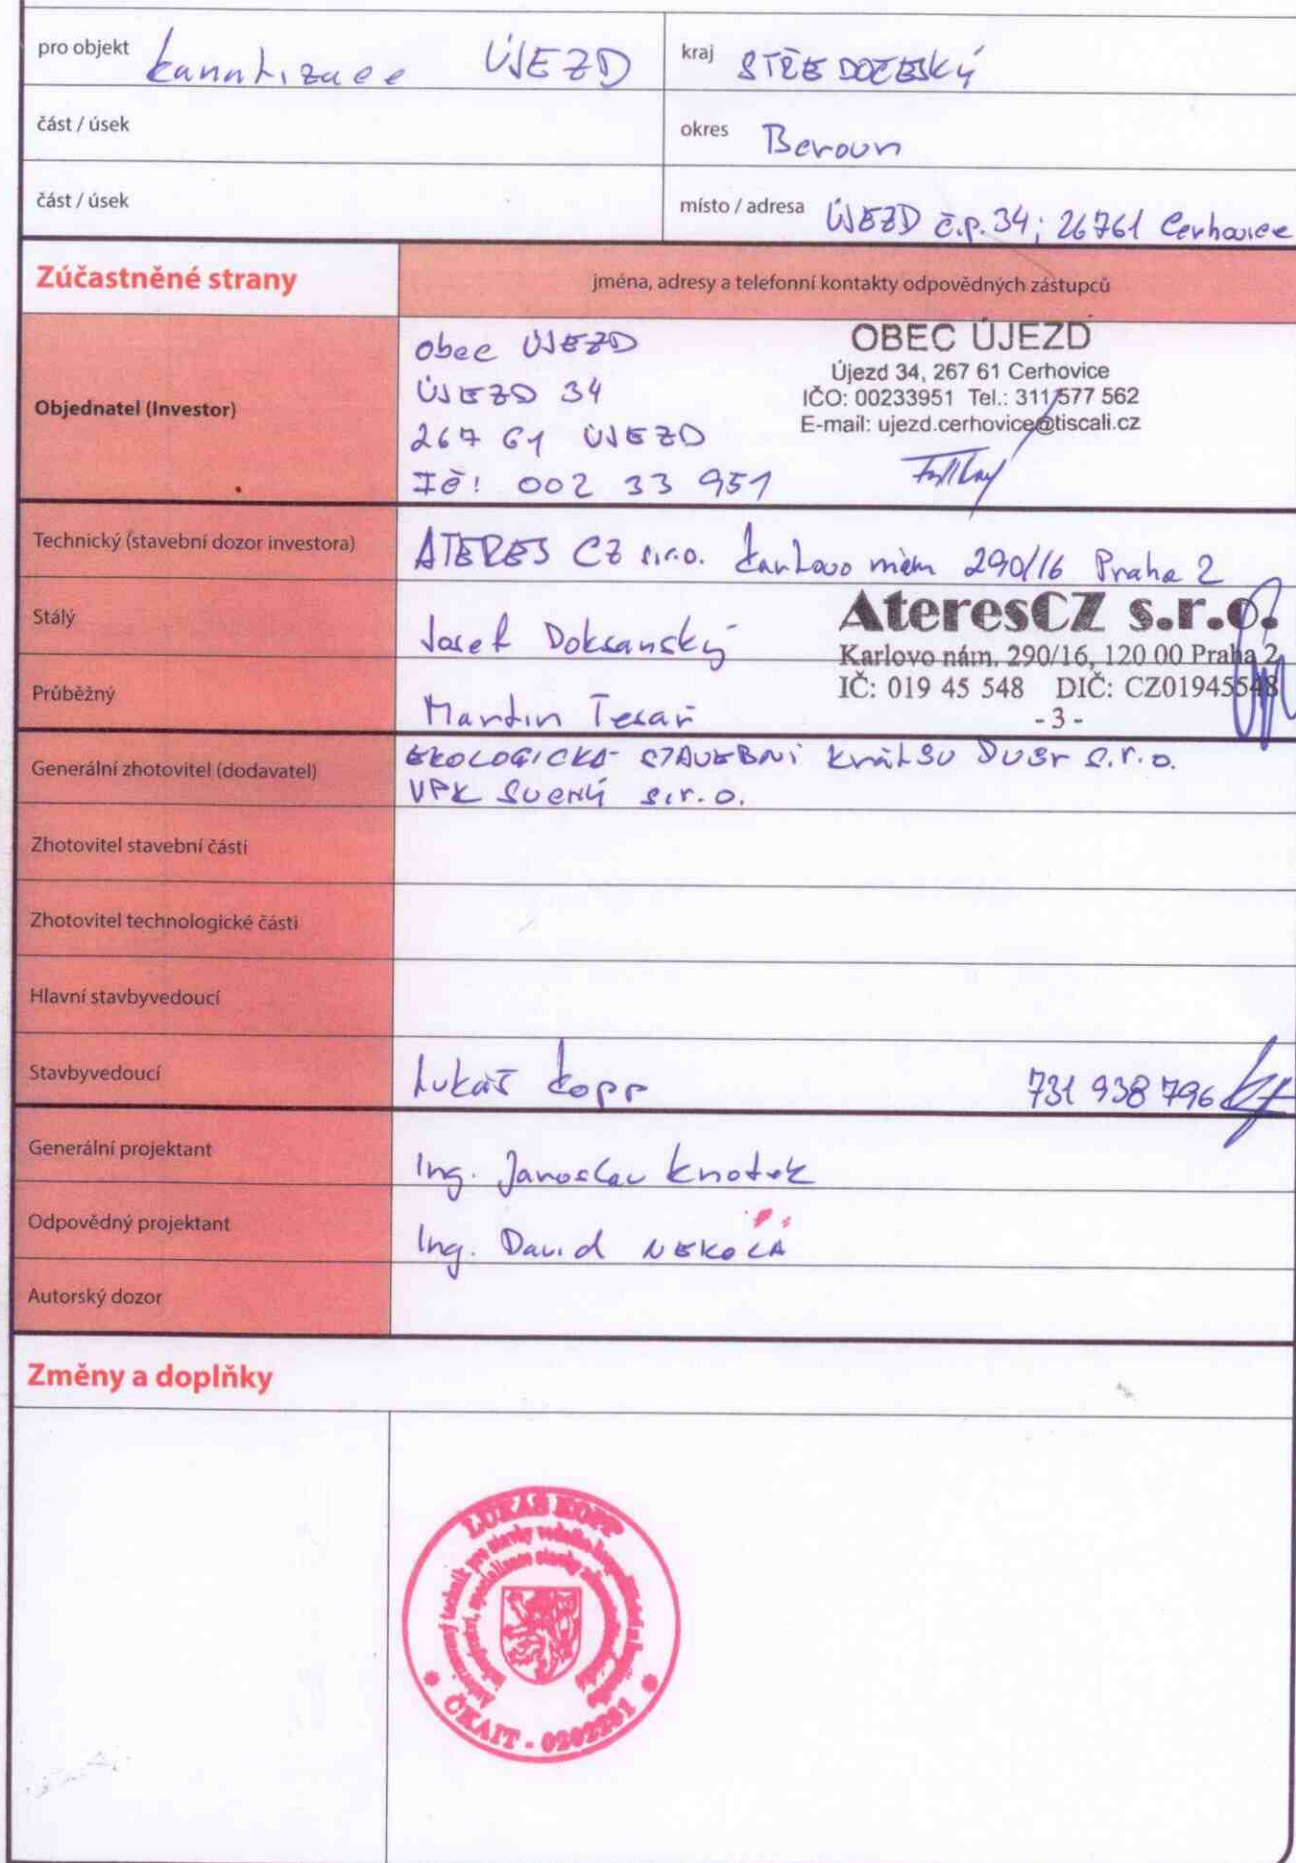 pro objekt kanalizace ÚJEZD
kraj STŘEDOČESKÝ
část / úsek
okres Beroun
část / úsek
místo / adresa ÚJEZD č.p. 34; 26761 Cerhovice
Zúčastněné strany
jména, adresy a telefonní kontakty odpovědných zástupců
Objednatel (Investor)
obec ÚJEZD
ÚJEZD 34
267 61 ÚJEZD
IČ: 002 33 951
OBEC ÚJEZD
Újezd 34, 267 61 Cerhovice
IČO: 00233951 Tel.: 311 577 562
E-mail: ujezd.cerhovice@tiscali.cz
Technický (stavební dozor investora)
ATERES CZ s.r.o. Karlovo nám 290/16 Praha 2
Stálý
Josef Doksanský
AteresCZ s.r.o.
Karlovo nám. 290/16, 120 00 Praha 2
IČ: 019 45 548 DIČ: CZ01945548
- 3 -
Průběžný
Martin Tesař
Generální zhotovitel (dodavatel)
EKOLOGICKÁ STAVEBNÍ Králův Dvůr s.r.o.
VPK Suchý s.r.o.
Zhotovitel stavební části
Zhotovitel technologické části
Hlavní stavbyvedoucí
Stavbyvedoucí
Lukáš Kopp 731 938 796
Generální projektant
Ing. Jaroslav Knotek
Odpovědný projektant
Ing. David NEKOLA
Autorský dozor
Změny a doplňky
LUKÁŠ KOPP
Autorizovaný technik pro stavby vodního hospodářství a krajinného
inženýrství, specializace stavby zdravotnětechnické
ČKAIT - 0202281